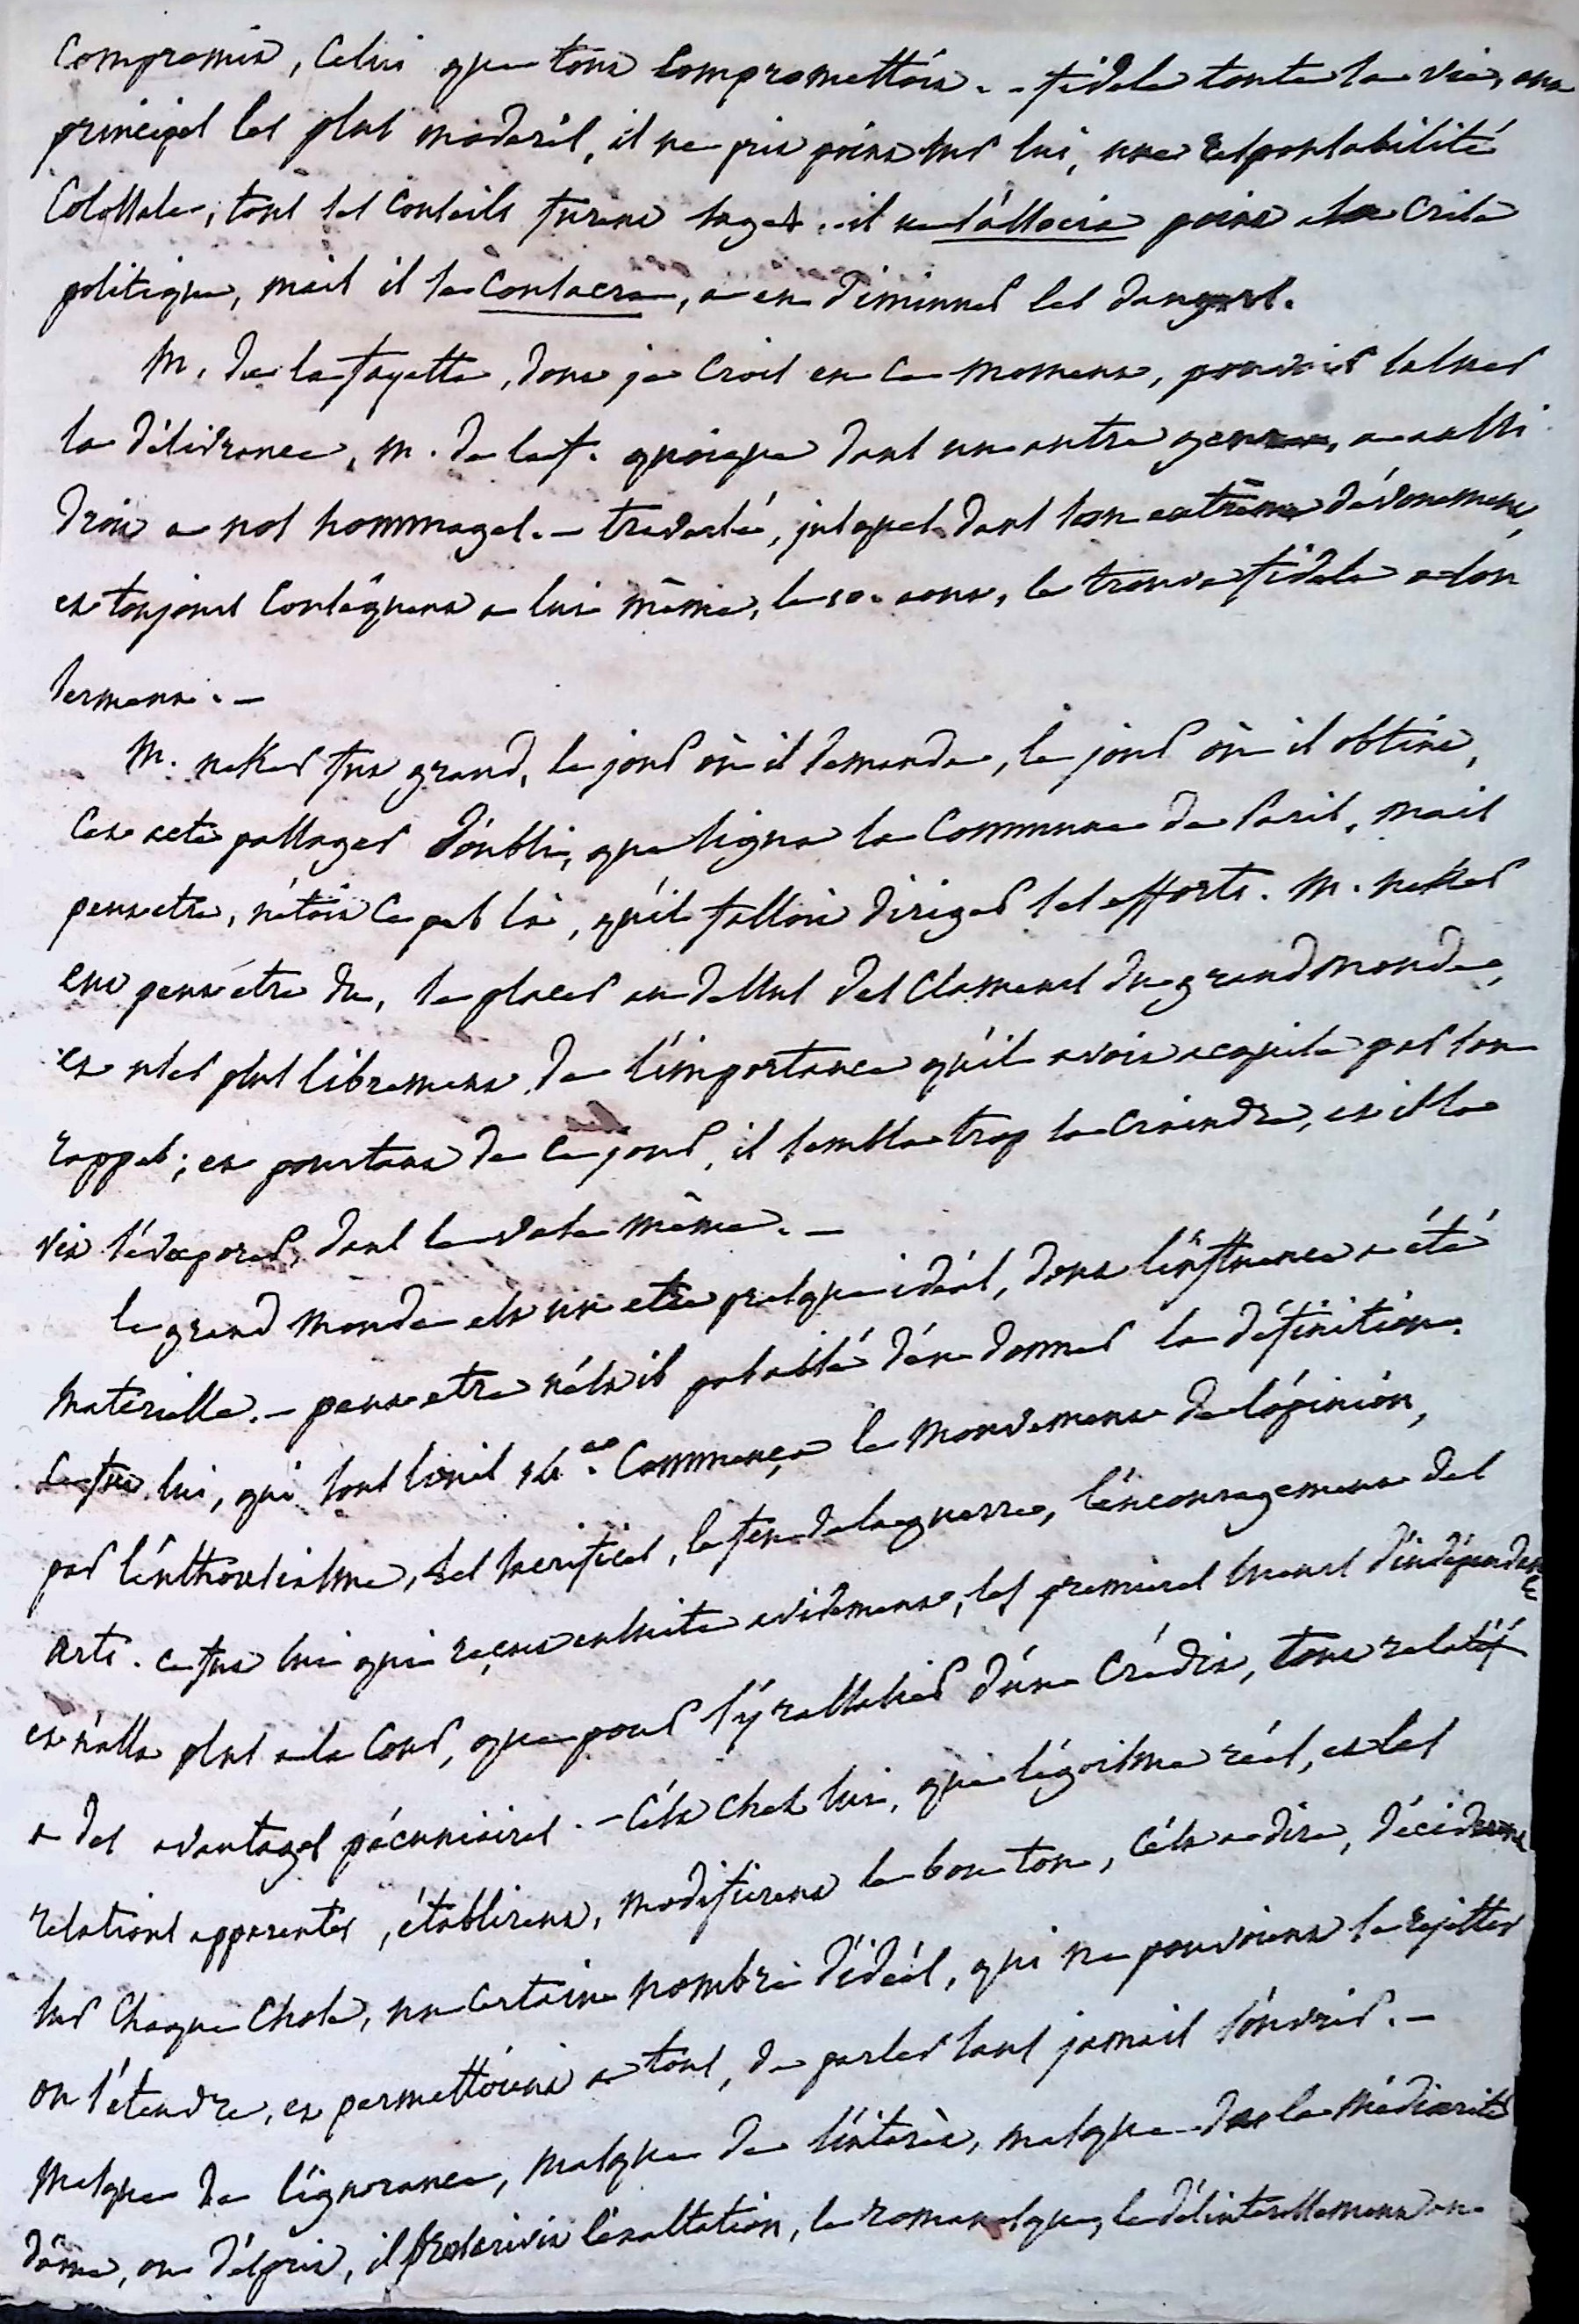 compromis, celui que tout compromettoit. - fidele toute sa vie, aux
principes les plus modérés, il ne prit point sur lui, une responsabilité
colossale, tous ses conseils furent sages. - il ne s'associa point a la crise
politique, mais il se consacra, a en diminuer les dangers.
M. de la fayette, dont je crois en ce moment, pouvoir saluer
la délivrance, M. de la f. quoique dans un autre genre, a aussi
droit a nos hommages. - traversé, jusques dans son extrême dévouement,
et toujours conséquent a lui même, le 10. aout, le trouva fidele a son
serment. -
M. neker fut grand, le jour où il demanda, le jour où il obtint,
cet acte passager d'oubli, que signa la commune de Paris, mais
peut etre, n'étoit ce pas là, qu'il falloit diriger ses efforts. M. neker
eut peut être du, se placer au dessus des clameurs du grand monde,
et user plus librement de l'importance qu'il avoit acquise par son
rappel; et pourtant de ce jour, il sembla trop la craindre, et il la
vit s'évaporer, dans le vase même. -
le grand monde est un etre presque idéal, dont l'influence a été
materielle. - peut etre n'est il pas aisé d'en donner la définition.
ce fut lui, qui sous Louis 14. commença le mouvement de l'opinion,
par l'enthousiasme, les sacrifices, le feu de la guerre, l'encouragement des
arts. ce fut lui qui reçut ensuite avidement, les premieres lueurs d'indépendance
et n'alla plus a la cour, que pour s'y rassasier d'un crédit, tout relatif
a des avantages pécuniaires. - C'est chez lui, que l'égoisme réel, et les
relations apparentes, établirent, modifierent le bon ton, c'est a dire, déciderent
sur chaque chose, un certain nombre d'idées, qui ne pouvoient se rejetter
ou s'étendre, et permettoient a tous, de parler sans jamais s'ouvrir. -
Masque de l'ignorance, masque de l'interêt, masque de la médiocrité
d'ame, ou d'esprit, il proscrivit l'exaltation, le romanesque, le désinteressement en